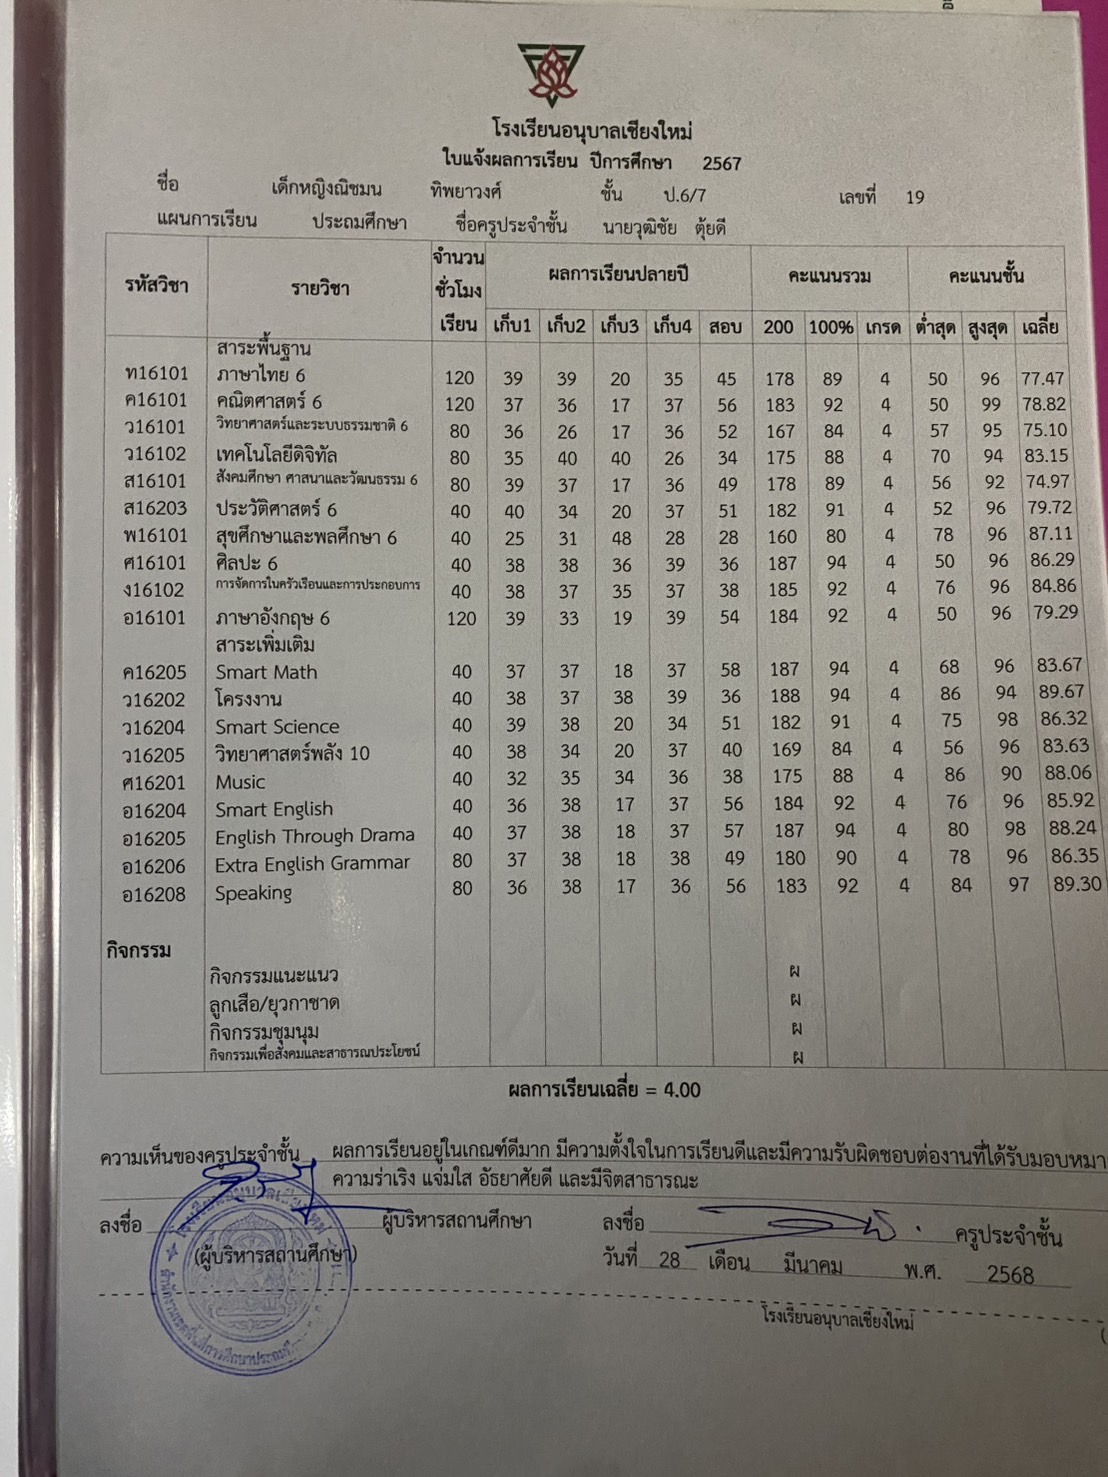 โรงเรียนอนุบาลเชียงใหม่
ใบแจ้งผลการเรียน ปีการศึกษา 2567
ชื่อ เด็กหญิงณิชมน ทิพยาวงศ์ ชั้น ป.6/7 เลขที่ 19
แผนการเรียน ประถมศึกษา ชื่อครูประจำชั้น นายวุฒิชัย ตุ้ยดี
รหัสวิชา รายวิชา จำนวนชั่วโมงเรียน ผลการเรียนปลายปี คะแนนรวม คะแนนชั้น
เก็บ1 เก็บ2 เก็บ3 เก็บ4 สอบ 200 100% เกรด ต่ำสุด สูงสุด เฉลี่ย
สาระพื้นฐาน
ท16101 ภาษาไทย 6 120 39 39 20 35 45 178 89 4 50 96 77.47
ค16101 คณิตศาสตร์ 6 120 37 36 17 37 56 183 92 4 50 99 78.82
ว16101 วิทยาศาสตร์และระบบธรรมชาติ 6 80 36 26 17 36 52 167 84 4 57 95 75.10
ว16102 เทคโนโลยีดิจิทัล 80 35 40 40 26 34 175 88 4 70 94 83.15
ส16101 สังคมศึกษา ศาสนาและวัฒนธรรม 6 80 39 37 17 36 49 178 89 4 56 92 74.97
ส16203 ประวัติศาสตร์ 6 40 40 34 20 37 51 182 91 4 52 96 79.72
พ16101 สุขศึกษาและพลศึกษา 6 40 25 31 48 28 28 160 80 4 78 96 87.11
ศ16101 ศิลปะ 6 40 38 38 36 39 36 187 94 4 50 96 86.29
ง16102 การจัดการในครัวเรือนและการประกอบการ 40 38 37 35 37 38 185 92 4 76 96 84.86
อ16101 ภาษาอังกฤษ 6 120 39 33 19 39 54 184 92 4 50 96 79.29
สาระเพิ่มเติม
ค16205 Smart Math 40 37 37 18 37 58 187 94 4 68 96 83.67
ว16202 โครงงาน 40 38 37 38 39 36 188 94 4 86 94 89.67
ว16204 Smart Science 40 39 38 20 34 51 182 91 4 75 98 86.32
ว16205 วิทยาศาสตร์พลัง 10 40 38 34 20 37 40 169 84 4 56 96 83.63
ศ16201 Music 40 32 35 34 36 38 175 88 4 86 90 88.06
อ16204 Smart English 40 36 38 17 37 56 184 92 4 76 96 85.92
อ16205 English Through Drama 40 37 38 18 37 57 187 94 4 80 98 88.24
อ16206 Extra English Grammar 80 37 38 18 38 49 180 90 4 78 96 86.35
อ16208 Speaking 80 36 38 17 36 56 183 92 4 84 97 89.30
กิจกรรม
กิจกรรมแนะแนว ผ
ลูกเสือ/ยุวกาชาด ผ
กิจกรรมชุมนุม ผ
กิจกรรมเพื่อสังคมและสาธารณประโยชน์ ผ
ผลการเรียนเฉลี่ย = 4.00
ความเห็นของครูประจำชั้น ผลการเรียนอยู่ในเกณฑ์ดีมาก มีความตั้งใจในการเรียนดีและมีความรับผิดชอบต่องานที่ได้รับมอบหมา
ความร่าเริง แจ่มใส อัธยาศัยดี และมีจิตสาธารณะ
ลงชื่อ ผู้บริหารสถานศึกษา ลงชื่อ ครูประจำชั้น
(ผู้บริหารสถานศึกษา) วันที่ 28 เดือน มีนาคม พ.ศ. 2568
โรงเรียนอนุบาลเชียงใหม่